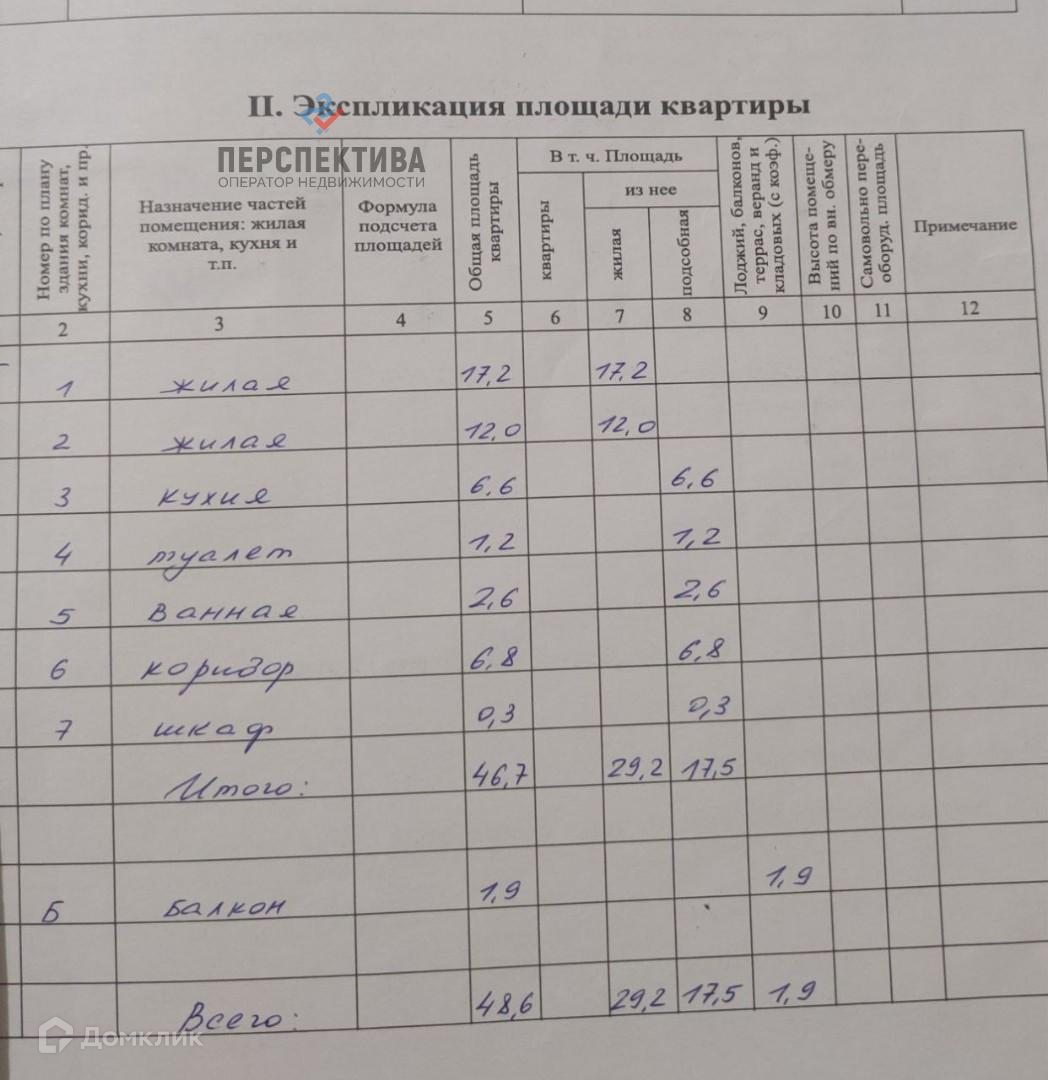 II. Экспликация площади квартиры
ПЕРСПЕКТИВА
ОПЕРАТОР НЕДВИЖИМОСТИ
Номер по плану
здания комнат,
кухни, корид. и пр.
Назначение частей
помещения: жилая
комната, кухня и
т.п.
Формула
подсчета
площадей
Общая площадь
квартиры
В т. ч. Площадь
квартиры
из нее
жилая
подсобная
Лоджий, балконов,
террас, веранд и
кладовых (с коэф.)
Высота помеще-
ний по вн. обмеру
Самовольно пере-
оборуд. площадь
Примечание
2 3 4 5 6 7 8 9 10 11 12
1 жилая 17,2 17,2
2 жилая 12,0 12,0
3 кухня 6,6 6,6
4 туалет 1,2 1,2
5 ванная 2,6 2,6
6 коридор 6,8 6,8
7 шкаф 0,3 0,3
Итого: 46,7 29,2 17,5
Б балкон 1,9 1,9
Всего: 48,6 29,2 17,5 1,9
Домклик